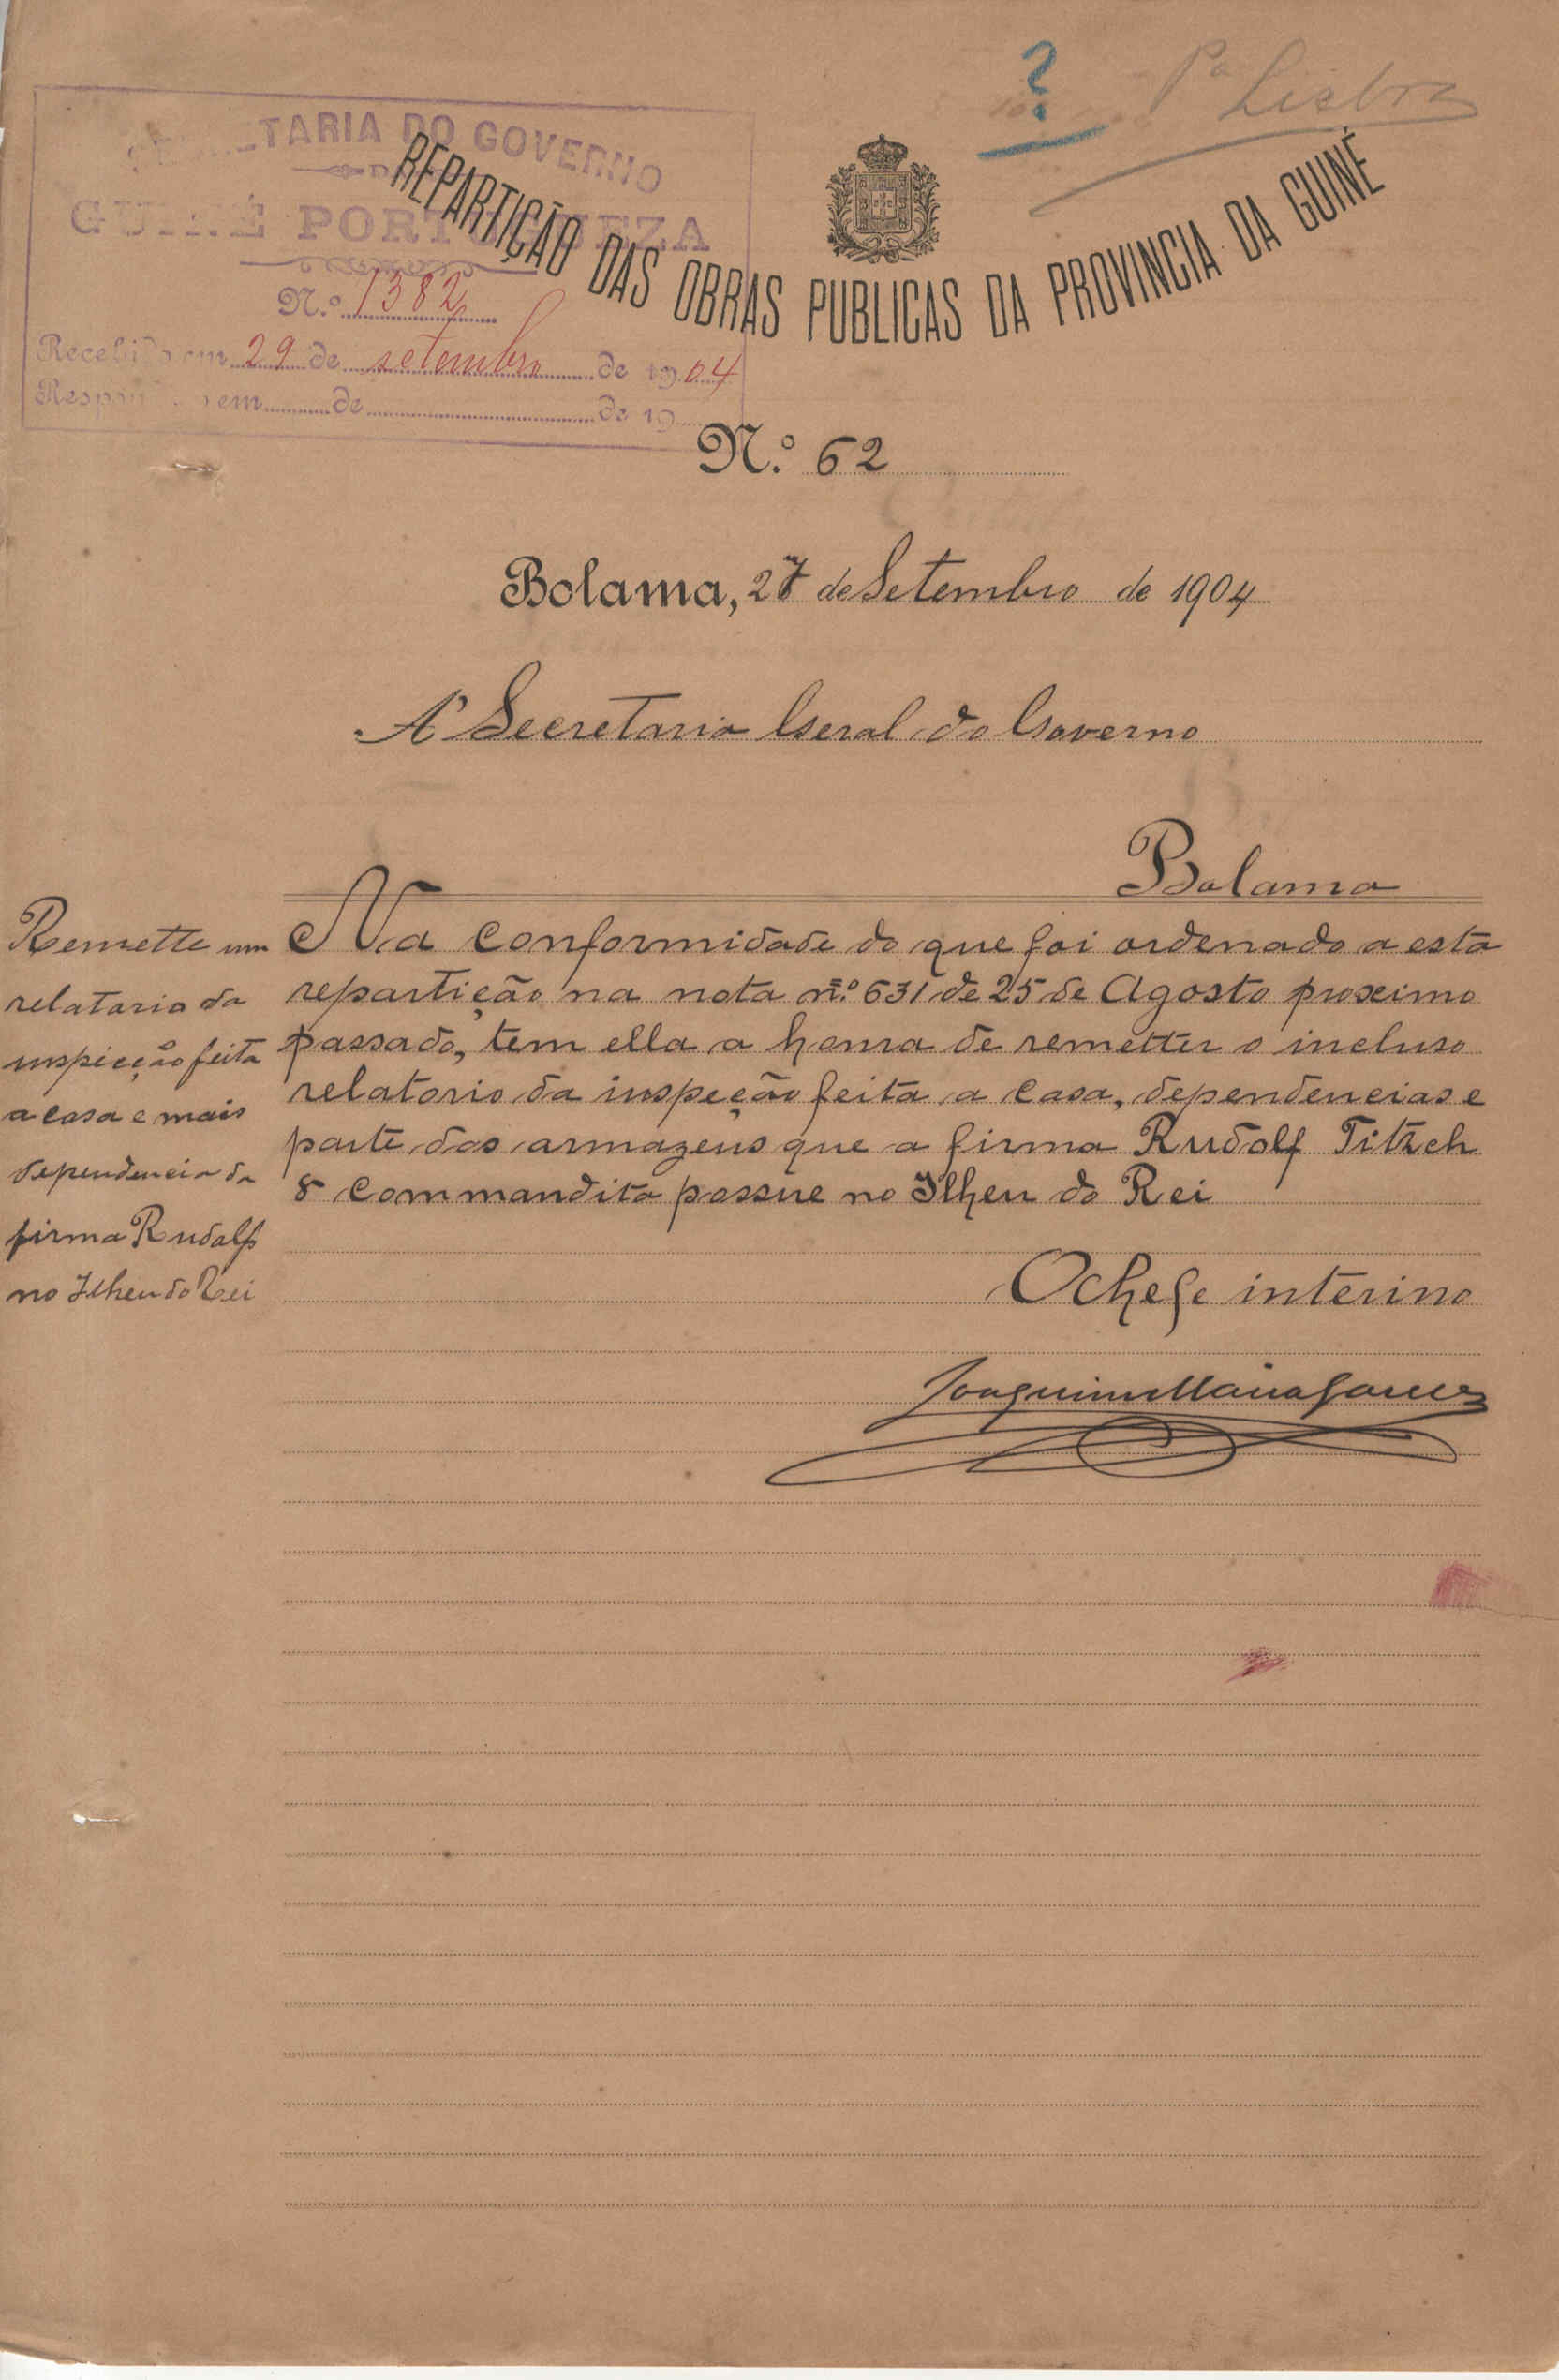 ?
Pª Lisboa
SECRETARIA DO GOVERNO
DA
GUINÉ PORTUGUEZA
N.º 1382
Recebido em 29 de setembro de 1904
Respondido em de de 19
REPARTIÇÃO DAS OBRAS PUBLICAS DA PROVINCIA DA GUINÉ
N.º 62
Bolama, 27 de Setembro de 1904
A' Secretaria Geral do Governo
Bolama
Remette um
relatorio da
inspecção feita
a casa e mais
dependencia da
firma Rudolf
no Ilheu do Rei
Na conformidade do que foi ordenado a esta
repartição na nota n.º 631 de 25 de Agosto proximo
passado, tem ella a honra de remetter o incluso
relatorio da inspeção feita a casa, dependencias e
parte dos armazens que a firma Rudolf Titzch
& Commandita possue no Ilheu do Rei
O chefe interino
Joaquim Maria Garcez